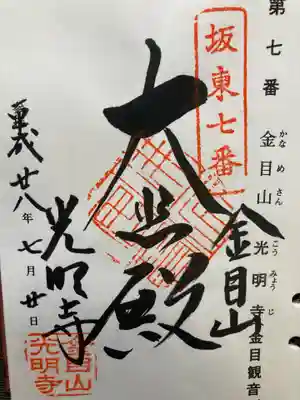 第七番 金目山光明寺(金目観音
かなめさん こうみょうじ
坂東七番
金目山
大悲殿
光明寺
平成廿八年七月廿日
金目山
光明寺